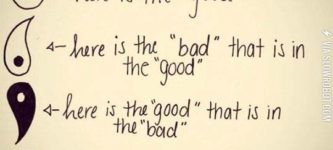 here is the "good"
here is the "bad" that is in
the "good"
here is the "good" that is in
the "bad"